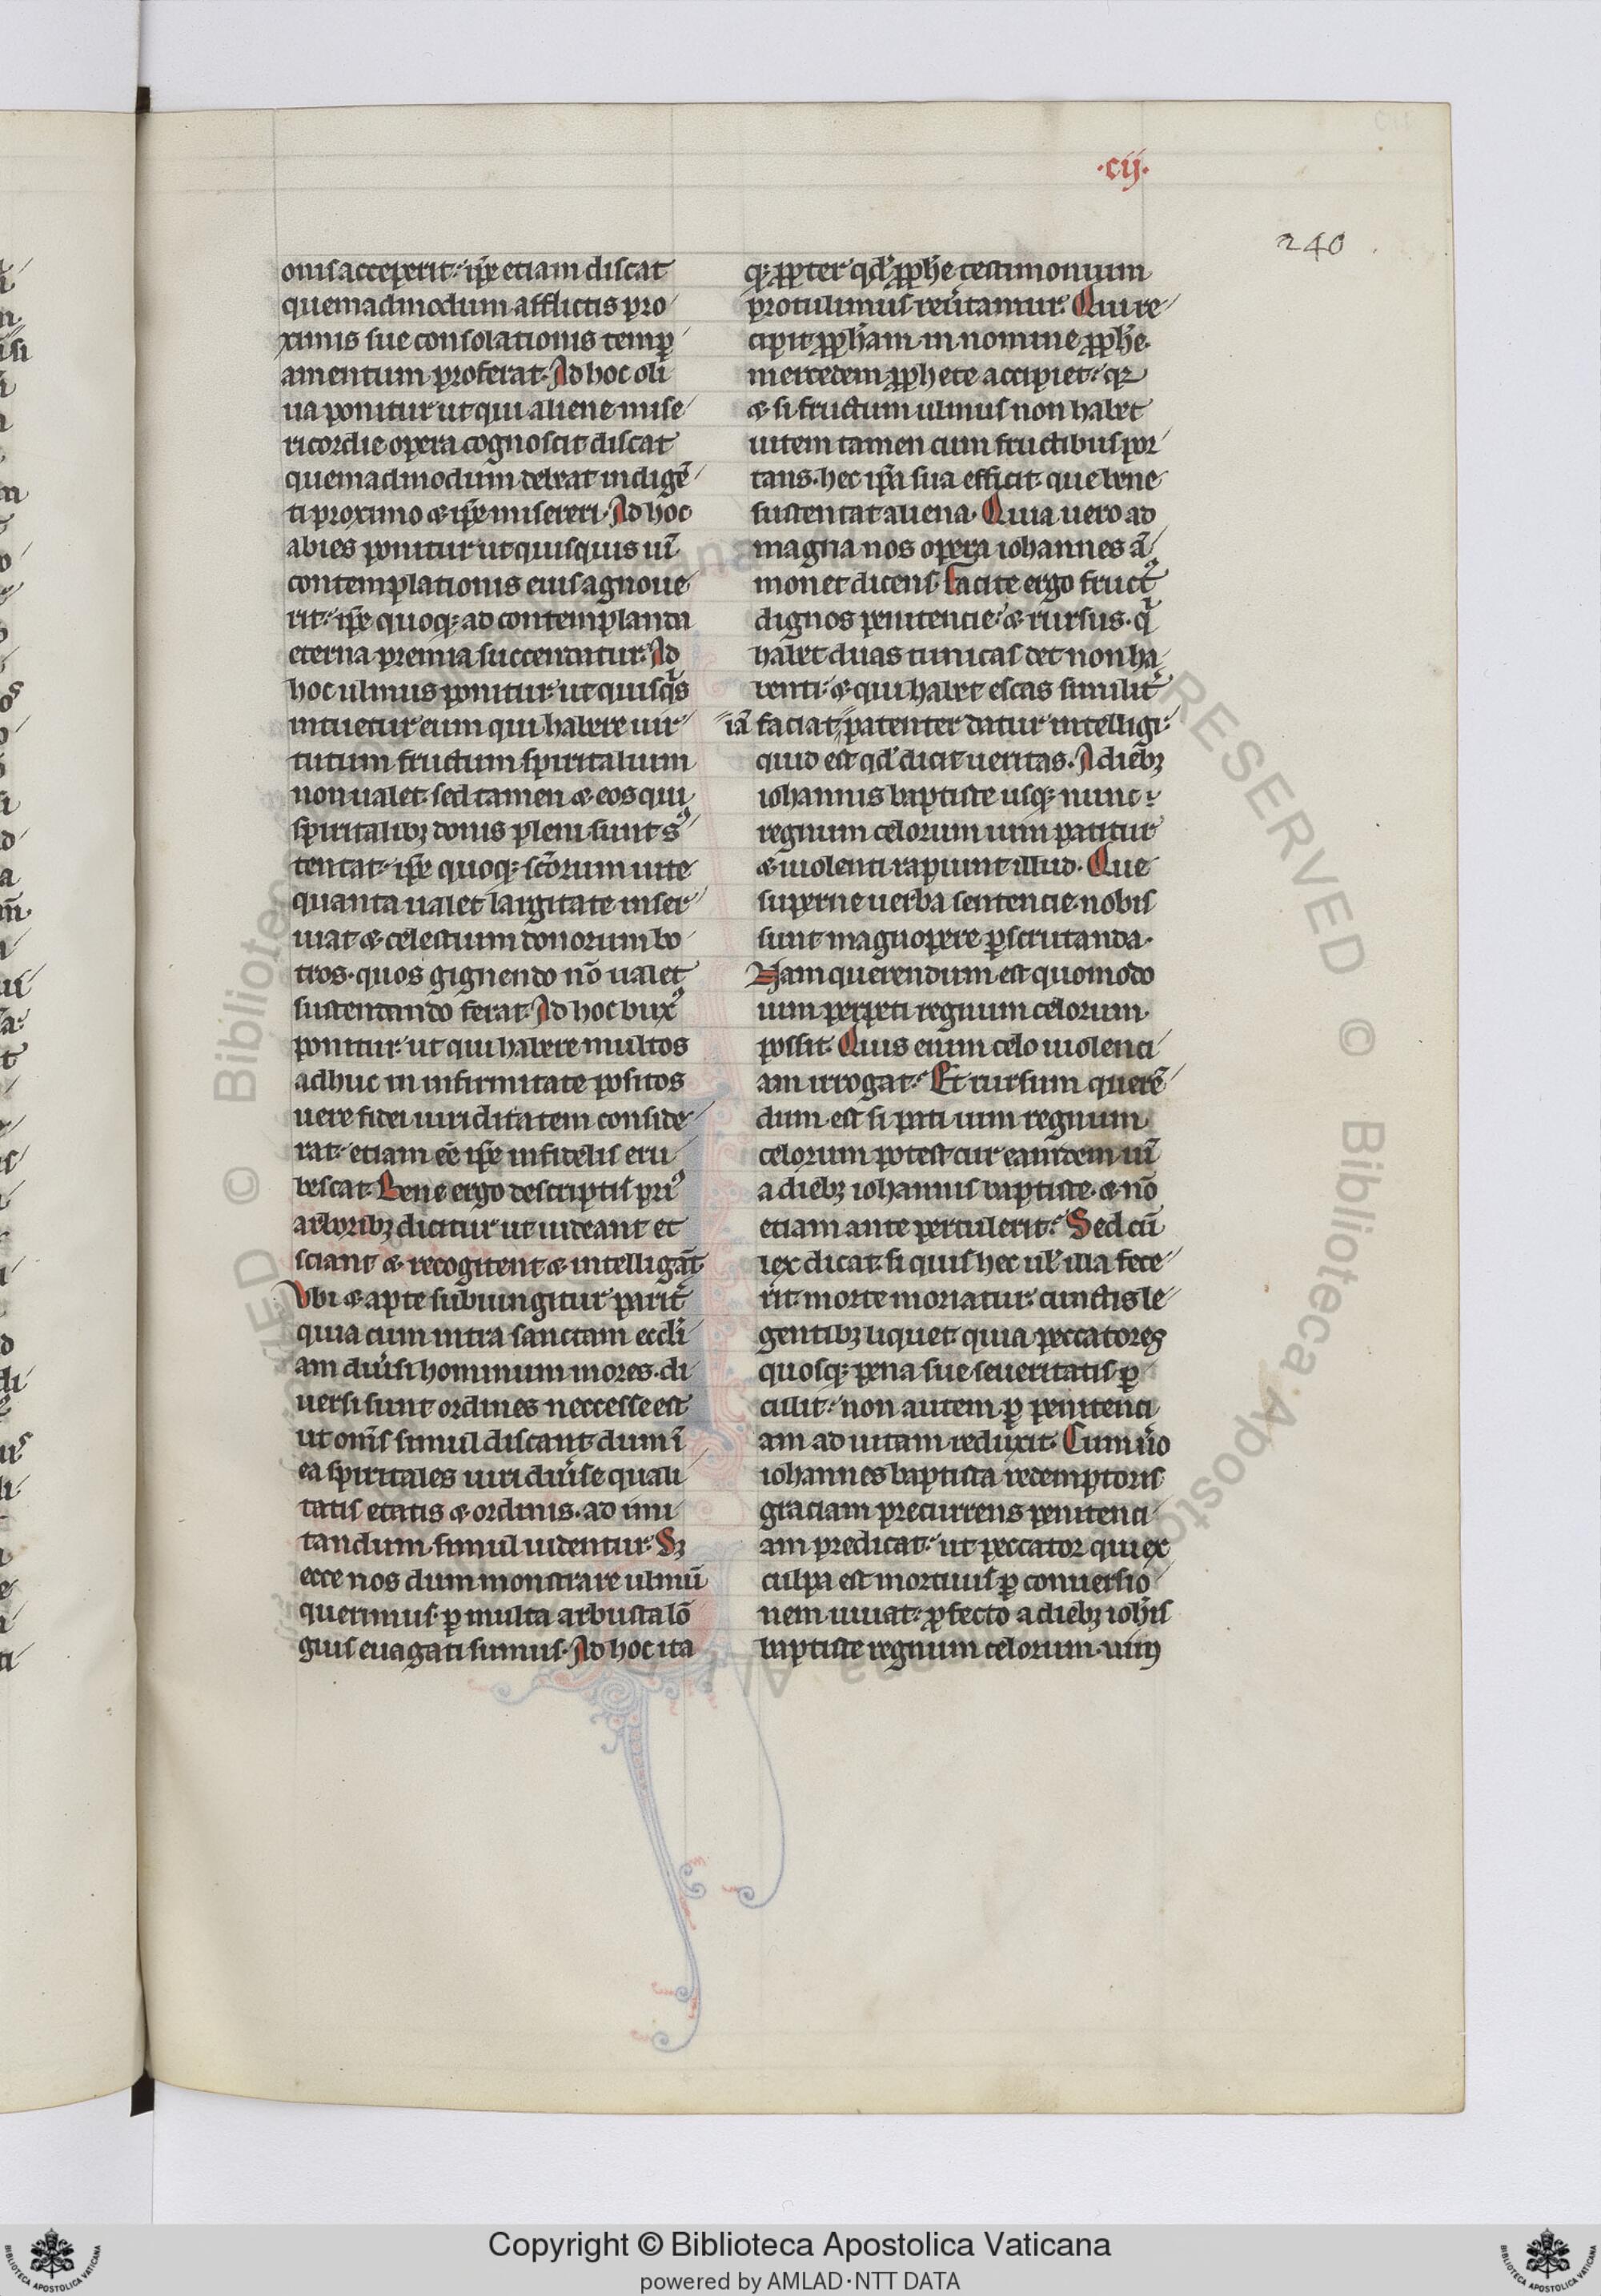 ·cij·
240
onis acceperit. ip̄e etiam discat
quemadmodum afflictis pro
ximis sue consolationis temp
amentum proferat. Ad hoc oli
ua ponitur ut qui aliene mise
ricordie opera cognoscit discat
quemadmodum debeat indigē
ti proximo & ip̄e misereri. Ad hoc
abies ponitur ut quisquis uī
contemplationis eius agnoue
rit. ip̄e quoq; ad contemplanda
eterna premia succendatur. Ad
hoc ulmus ponitur ut quisqͥs
intuetur eum qui habere uir
tutum fructum spiritalium
non ualet. sed tamen & eos qui
spiritalibꝫ donis pleni sunt sꝰ
tentat. ip̄e quoq; sc̄orum uite
quanta ualet largitate inser
uiat & celestium donorum bo
tros. quos gignendo nō ualet
sustentando ferat. Ad hoc buxꝰ
ponitur. ut qui habere multos
adhuc in infirmitate positos
uere fidei uiriditatem conside
rat. etiam eē ip̄e infidelis eru
bescat. Bene ergo descriptis priꝰ
arboribꝫ dicitur ut uideant et
sciant & recogitent & intelligāt
Vbi & apte subiungitur parit̄
quia cum intra sanctam eccli
am diu̾si hominum mores. di
uersi sunt ordines neccesse est
ut om̄s simul discant dum ī
ea spiritales uiri diu̾se quali
tatis etatis & ordinis. ad imi
tandum simul uidentur. Sꝫ
ecce nos dum monstrare ulmū
querimus. ꝑ multa arbusta lō
gius euagati sumus. Ad hoc ita
q; ꝓpter qd̄ ꝓph̄e testimonium
protulimus reu̾tamur. Qui re
cipit ꝓph̄am in nomine ꝓph̄e.
mercedem ꝓphete accipiet. qꝛ
& si fructum ulmus non habet
uitem tamen cum fructibus por
tans. hec ip̄a sua efficit. que bene
sustentat aliena. Quia uero ad
magna nos opera iohannes ā
monet dicens. Facite ergo fructꝰ
dignos penitencie. & rursus. qͥ
habet duas tunicas det non ha
benti. & qui habet escas similit̄
iā faciat patenter datur intelligi.
quid est qd̄ dicit ueritas. A diebꝫ
iohannis baptiste usq; nunc
regnum celorum uim patitur
& uiolenti rapiunt illud. Que
superne uerba sentencie. nobis
sunt magnopere ꝑscrutanda.
Nam querendum est quomodo
uim perpeti regnum celorum
possit. Quis enim celo uiolenci
am irrogat. Et rursum querē
dum est si pati uim regnum
celorum potest cur eamdem uī
a diebꝫ iohannis baptiste. & nō
etiam ante pertulerit. Sed cū
lex dicat. si quis hec ul̄ illa fece
rit. morte moriatur. cunctis le
gentibꝫ liquet quia peccatores
quosq; pena sue seueritatis ꝑ
culit. non autem ꝑ penitenci
am ad uitam reduxit. Cum u̾o
iohannes baptista redemptoris
graciam precurrens penitenci
am predicat. ut peccator qui ex
culpa est mortuus ꝑ conuersio
nem uiuat. ꝓfecto a diebꝫ ioh̄is
baptiste regnum celorum. uim
Copyright © Biblioteca Apostolica Vaticana
powered by AMLAD·NTT DATA